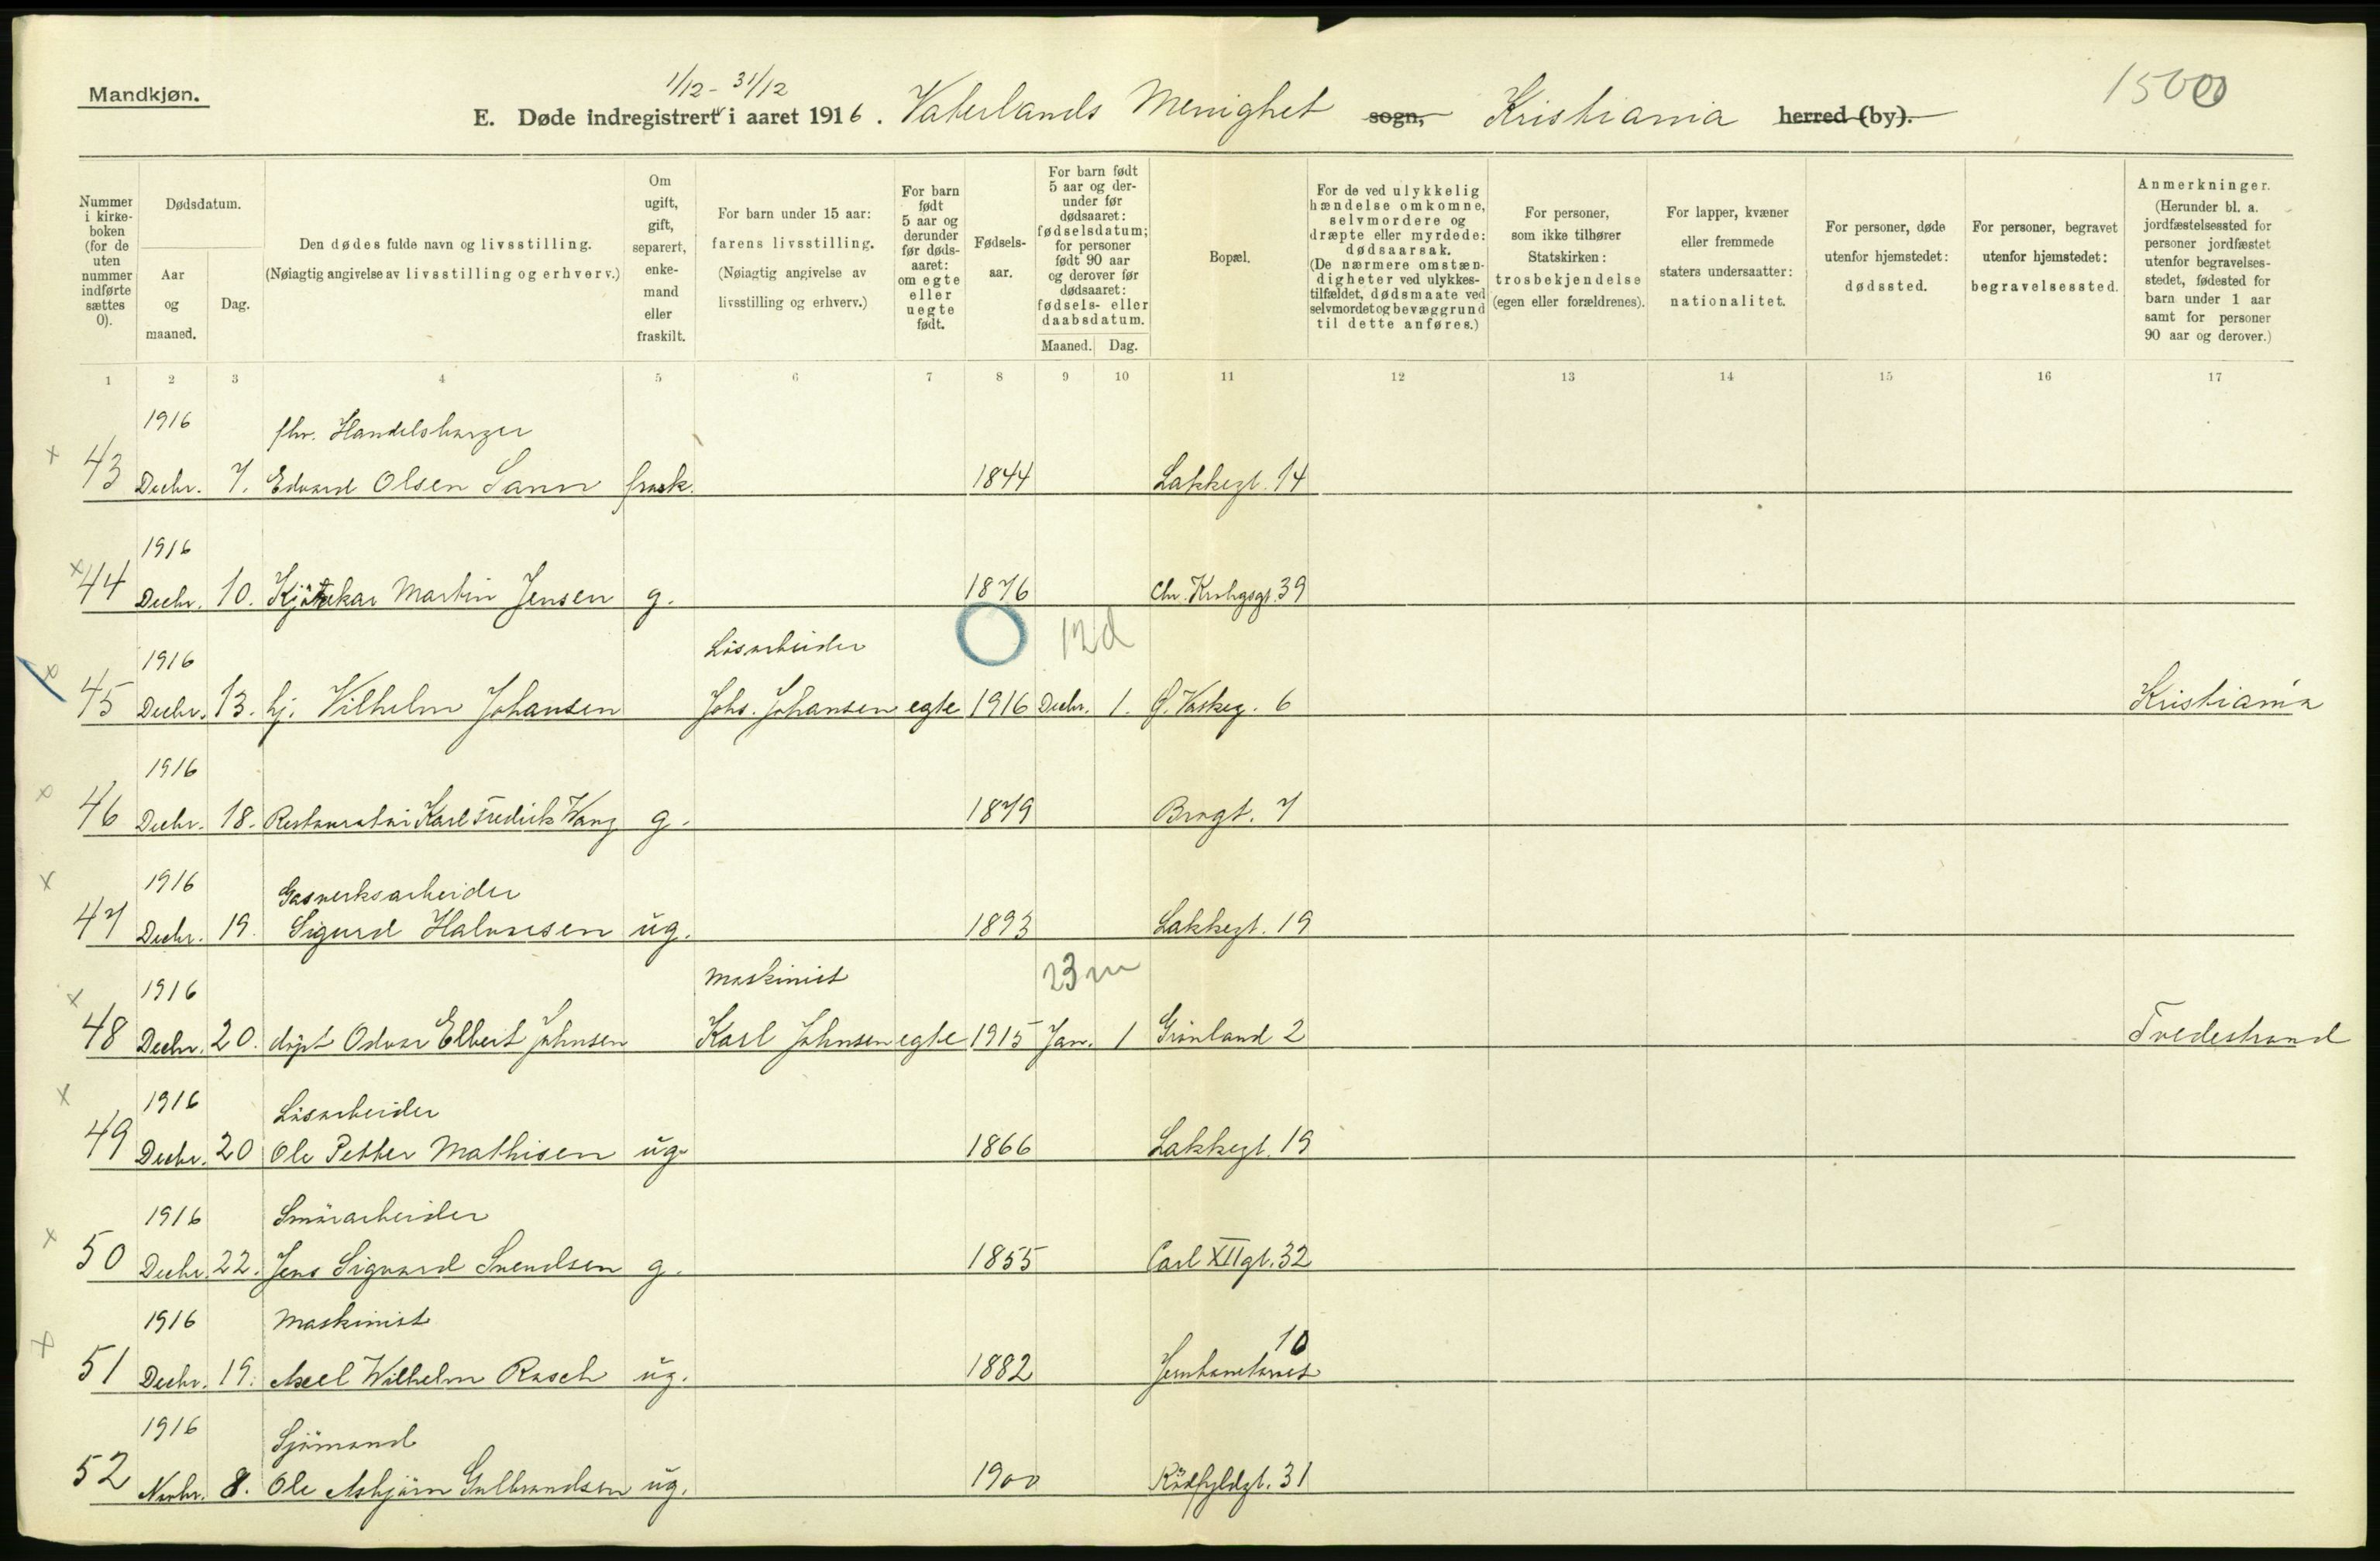 Mandkjøn.
1/12 - 31/12
1500
E. Døde indregistrert i aaret 1916. Vaterlands Menighet sogn, Kristiania herred (by).
Nummer i kirkeboken (for de uten nummer indførte sættes 0).
Dødsdatum.
Aar og maaned.
Dag.
Den dødes fulde navn og livsstilling.
(Nøiagtig angivelse av livsstilling og erhverv.)
Om ugift, gift, separert, enkemand eller fraskilt.
For barn under 15 aar: farens livsstilling. (Nøiagtig angivelse av livsstilling og erhverv.)
For barn født 5 aar og derunder før dødsaaret: om egte eller uegte født.
Fødselsaar.
For barn født 5 aar og derunder før dødsaaret: fødselsdatum; for personer født 90 aar og derover før dødsaaret: fødsels- eller daabsdatum.
Maaned. Dag.
Bopæl.
For de ved ulykkelig hændelse omkomne, selvmordere og dræpte eller myrdede: dødsaarsak. (De nærmere omstændigheter ved ulykkestilfældet, dødsmaate ved selvmordet og bevæggrund til dette anføres.)
For personer, som ikke tilhører Statskirken: trosbekjendelse (egen eller forældrenes).
For lapper, kvæner eller fremmede staters undersaatter: nationalitet.
For personer, døde utenfor hjemstedet: dødssted.
For personer, begravet utenfor hjemstedet: begravelsessted.
Anmerkninger. (Herunder bl. a. jordfæstelsessted for personer jordfæstet utenfor begravelsesstedet, fødested for barn under 1 aar samt for personer 90 aar og derover.)
1 2 3 4 5 6 7 8 9 10 11 12 13 14 15 16 17
1916 fhv. Handelsborger
43 Decbr. 7. Edvard Olsen Sann frask. 1844 Lakkegt. 14
1916
44 Decbr. 10. Martin Jensen g. 1876 Chr. Krohgsgt. 39
1916 Løsarbeider 12d
45 Decbr. 13. hj. Vilhelm Johansen Johs. Johansen egte 1916 Decbr. 1. Ø. Vaskeg. 6 Kristiania
1916
46 Decbr. 18. Restauratør Karl Fredrik Wang g. 1879 Brogt. 7
1916 Gasverksarbeider
47 Decbr. 19. Sigurd Halvorsen ug. 1893 Lakkegt. 19
1916 Maskinist 23 m
48 Decbr. 20. døpt Odvar Elbert Johnsen Karl Johnsen egte 1915 Jan. 1 Grønland 2 Tvedestrand
1916 Løsarbeider
49 Decbr. 20 Ole Petter Mathisen ug. 1866 Lakkegt. 19
1916 Småarbeider
50 Decbr. 22. Jens Sigvard Svendsen g. 1855 Carl XII gt. 32
1916 Maskinist 10
51 Decbr. 19. Axel Wilhelm Rasch ug. 1882 Jernbanetorvet
1916 Sjömand
52 Novbr. 8. Ole Asbjörn Gulbrandsen ug. 1900 Rödfyldgt. 31